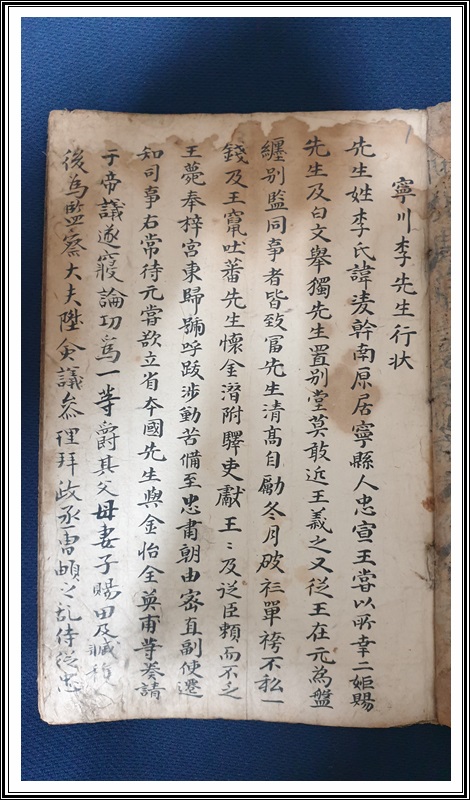 寧川李先生行状
先生姓李氏諱凌幹南原居寧縣人忠宣王嘗以所幸二姬賜
先生及白文舉獨先生置別堂莫敢近王義之又從王在元為盤
纏別監同事者皆致冨先生清高自勵冬月破衫單袴不私一
錢及王竄吐蕃先生懷金潛附驛吏獻王〻及從臣頼而不乏
王薨奉梓宮東歸號呼跋涉勤苦備至忠肅朝由密直副使遷
知司事右常侍元嘗欲立省夲國先生與金怡全英甫等奏請
于帝議遂寢論功為一等爵其父母妻子賜田及臧
後為監察大夫陞僉議叅理拜政丞曹頔之乱侍從忠